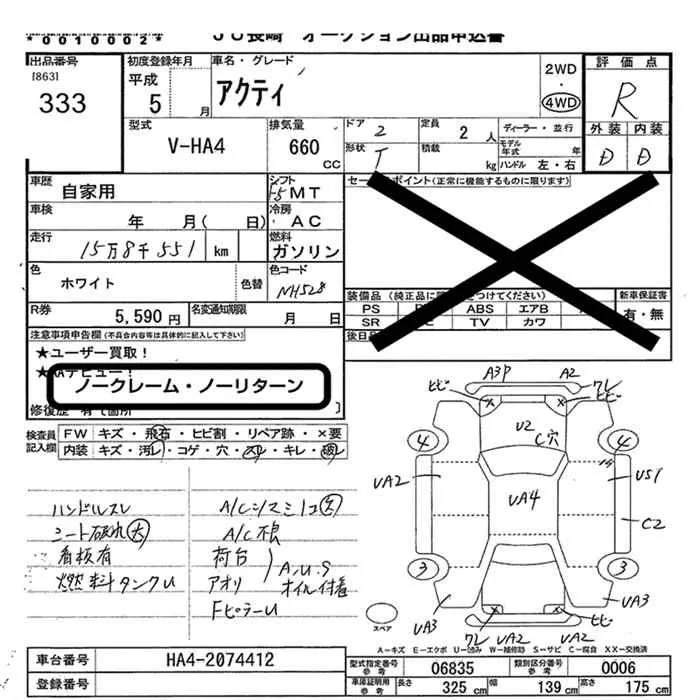 *0010002*
JU長崎 オークション出品申込書
出品番号
[863]
333
初度登録年月
平成
5 月
車名・グレード
アクティ
2WD
・
4WD
評価点
R
外装 内装
D D
型式
V-HA4
排気量
660
CC
ドア 2
定員 2 人
ディーラー・並行
形状 T
積載 kg
モデル年式 年
ハンドル 左・右
車歴
自家用
シフト
F5 MT
車検
年 月( 日)
冷房
AC
走行
15万8千551 km
燃料
ガソリン
色
ホワイト
色替
色コード
NH528
R券
5,590円
名変通知期限
月 日
セールスポイント(正常に機能するものに限ります)
装備品(純正品に
をつけてください)
新車保証書
PS ABS エアB
有・無
SR TV カワ
後日品
注意事項申告欄(不具合内容等は具体的に記入して下さい)
★ユーザー買取!
★AAデビュー!
ノークレーム・ノーリターン
修復歴 有で箇所
検査員
記入欄
FW キズ・飛石・ヒビ割・リペア跡・×要
内装 キズ・汚レ・コゲ・穴・スレ・キレ・破レ
ハンドルスレ
シート破れ大
看板有
燃料タンクU
A/C
A/C
荷台
アオリ
A.U.S
オイル付着
FピラーU
A3P A2
ヒビ
ワレ
ヒビ
U2
C穴
4 4
UA2
UA4
US1
C2
3 3
UA3
UA3
ワレ UA2 UA2 ヒビ
スペア
A-キズ E-エクボ U-凹み W-補修跡 S-サビ C-腐食 XX-交換済
車台番号
HA4-2074412
登録番号
型式指定番号
参考
06835
類別区分番号
参考
0006
車庫証明用
参考
長さ 325 cm
幅 139 cm
高さ 175 cm